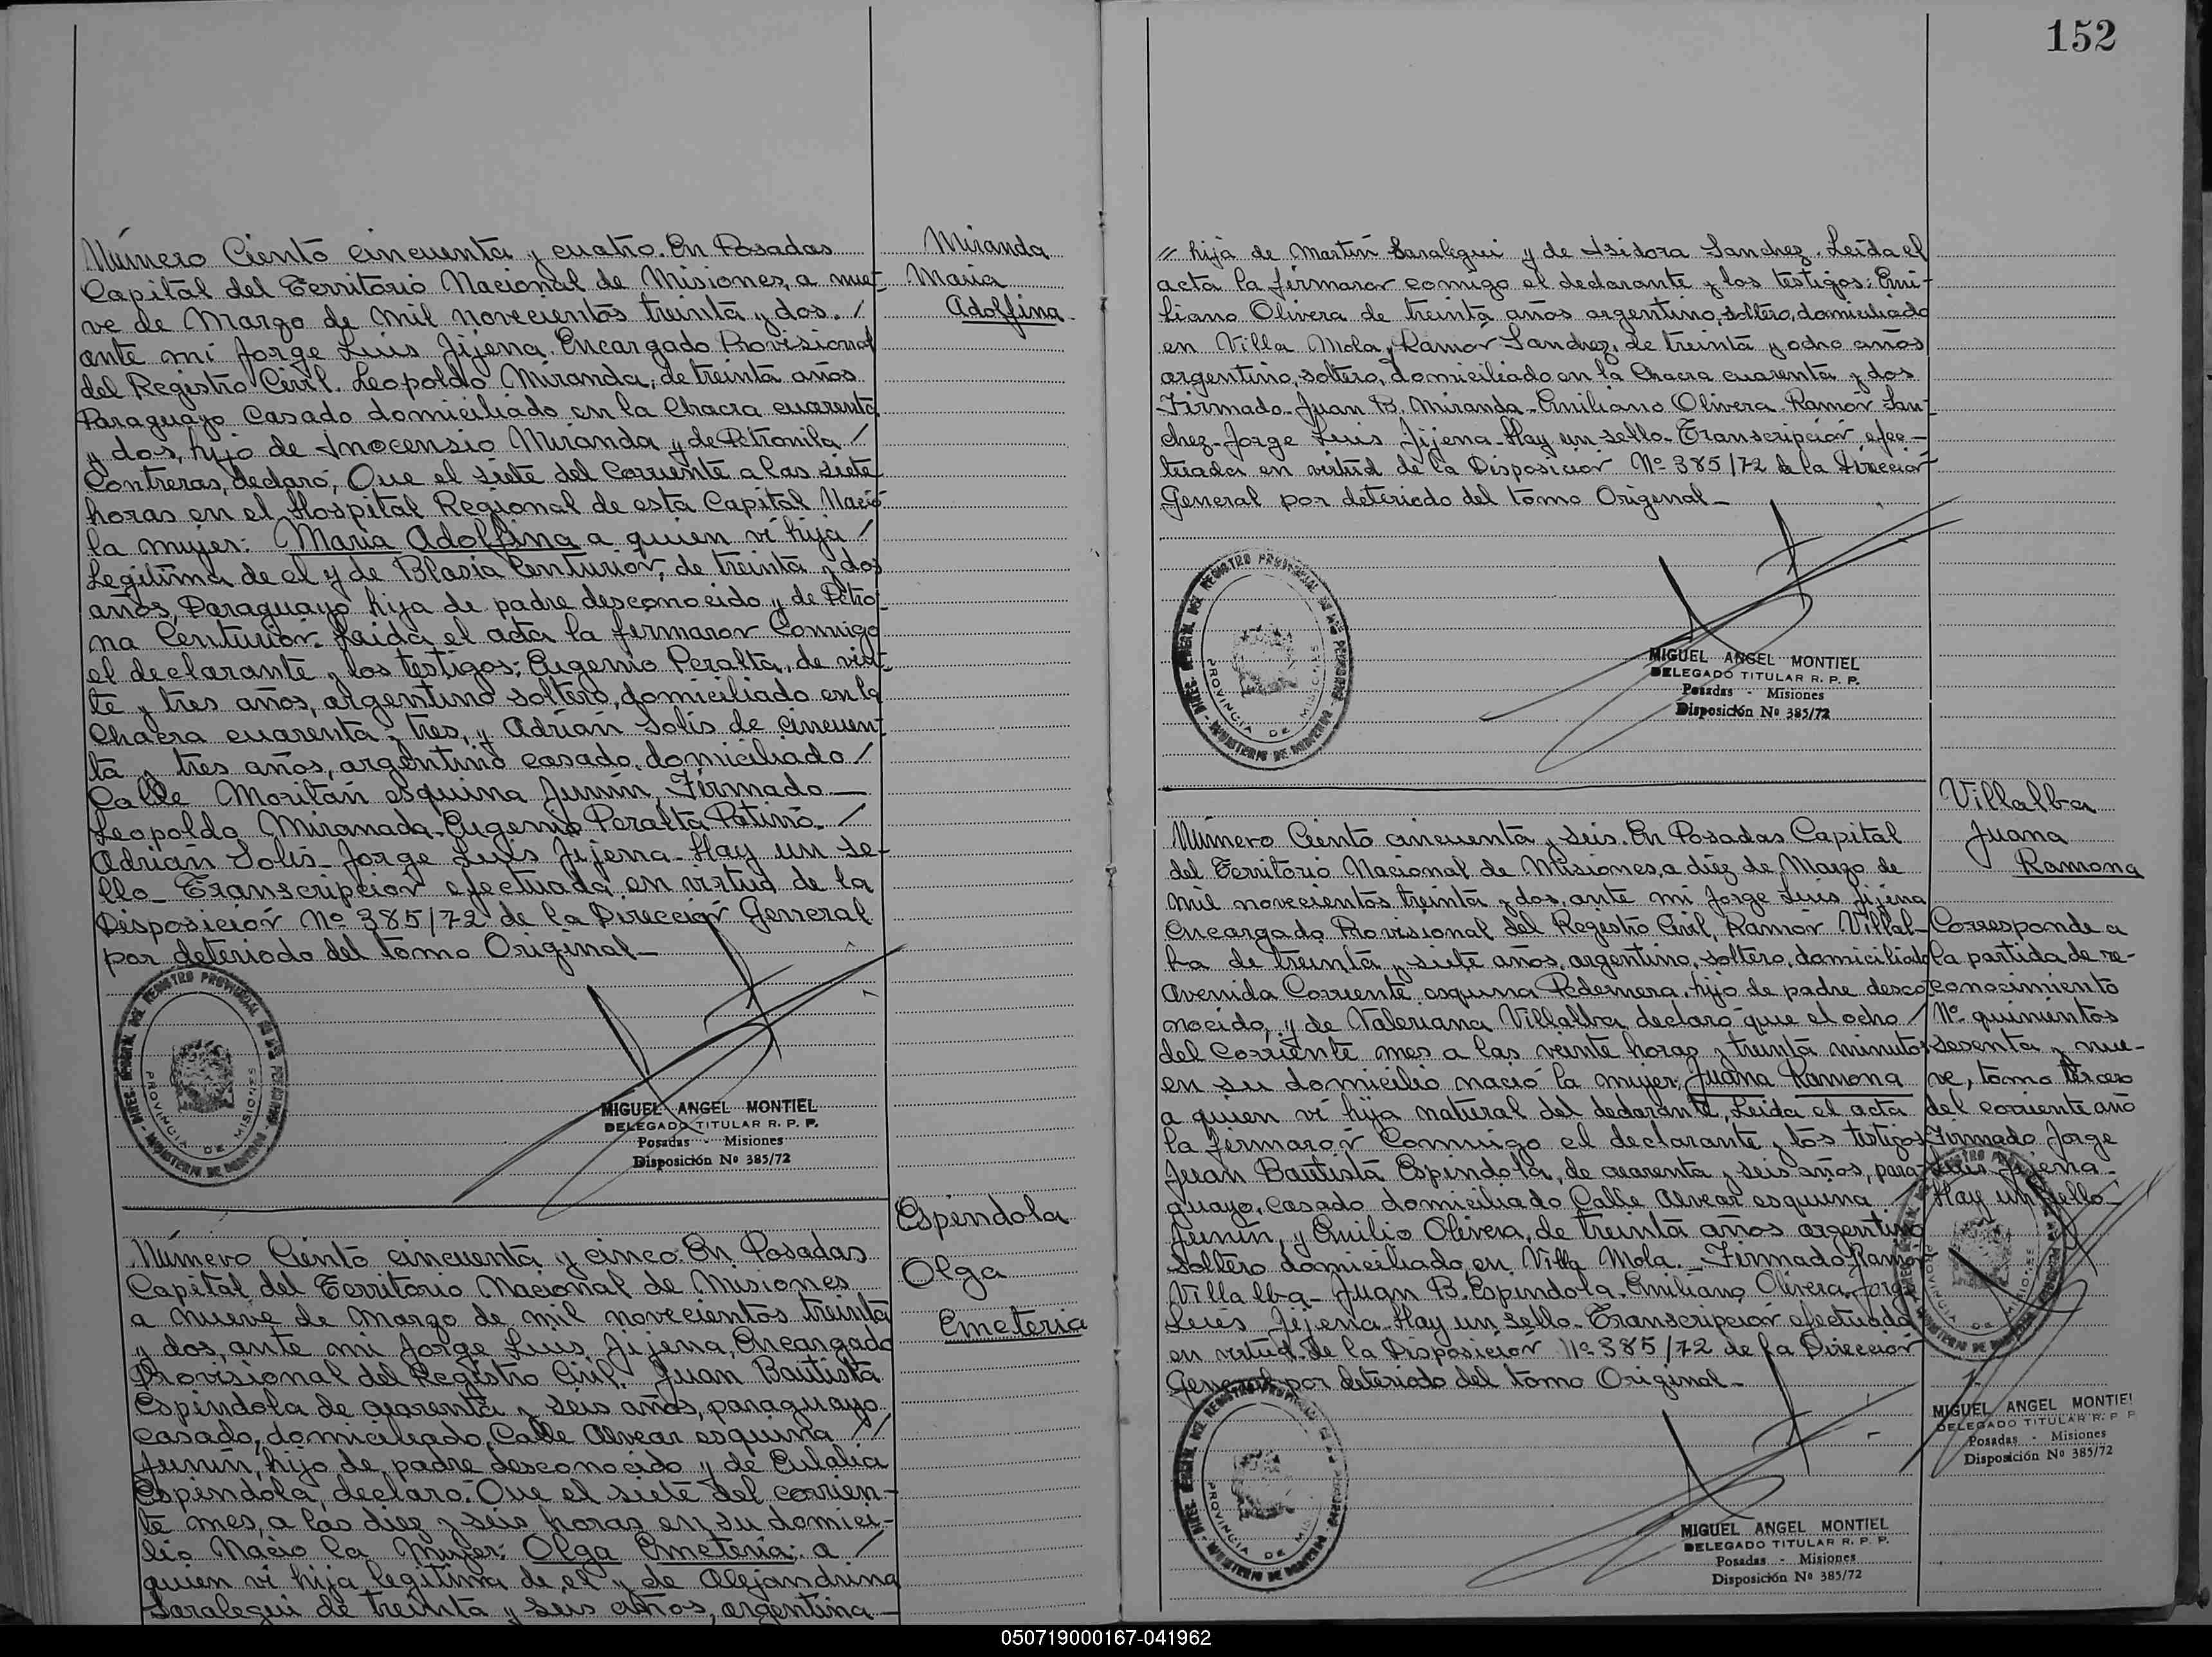 Número Ciento cincuenta y cuatro. En Posadas
Capital del Territorio Nacional de Misiones, a nue-
ve de Marzo de mil novecientos treinta y dos. /
ante mí Jorge Luis Jijena. Encargado Provisional
del Registro Civil. Leopoldo Miranda, de treinta años
Paraguayo Casado domiciliado en la Chacra cuarenta
y dos, hijo de Inocensio Miranda y de Petronila /
Contreras, declaró, Que el siete del Corriente a las siete
horas en el Hospital Regional de esta Capital Nació
la mujer: María Adolfina a quien ví hija /
Legitima de el y de Blasia Centurión, de treinta y dos
años, Paraguayo hija de padre desconocido y de Petro-
na Centurión. Leida el acta la firmaron Conmigo
el declarante y los testigos: Eugenio Peralta, de vein-
te y tres años, argentino soltero, domiciliado en la
Chacra cuarenta y tres, y Adrián Solis de cincuen-
ta y tres años, argentino casado, domiciliado /
Calle Moritán esquina Junín, Firmado —
Leopoldo Miranada. Eugenio Peralta Patiño. /
Adrián Solis - Jorge Luis Jijena - Hay un se-
llo - Transcripción efectuada en virtud de la
Disposición Nº 385/72 de la Dirección General
por deteriodo del tomo Original -
Miranda
María
Adolfina
DIREC. GENERAL DEL REGISTRO PROVINCIAL DE LAS PERSONAS - MINISTERIO DE GOBIERNO
PROVINCIA DE MISIONES
MIGUEL ANGEL MONTIEL
DELEGADO TITULAR R. P. P.
Posadas - Misiones
Disposición Nº 385/72
Número Ciento cincuenta y cinco. En Posadas
Capital del Territorio Nacional de Misiones
a nueve de Marzo de mil novecientos treinta
y dos, ante mí Jorge Luis Jijena, Encargado
Provisional del Registro Civil. Juan Bautista
Espíndola de cuarenta y seis años, paraguayo
casado, domiciliado, Calle Alvear esquina //
Junín, hijo de padre desconocido y de Eulalia
Espíndola, declaro. Que el siete del corrien-
te mes, a las diez y seis horas en su domici-
lio Nacio la Mujer: Olga Emeteria: a /
quien ví hija legitima de el y de Alejandrina
Saralegui de treinta y seis años, argentina -
Espíndola
Olga
Emeteria
152
// hija de Martín Saralegui y de Isidora Sanchez. Leída el
acta la firmaron comigo el declarante y los testigos: Emi-
liano Olivera de treinta años argentino, soltero, domiciliado
en Villa Mola, y Ramón Sanchez, de treinta y ocho años
argentino, soltero, domiciliado en la Chacra cuarenta y dos
- Firmado - Juan B. Miranda - Emiliano Olivera - Ramón San-
chez - Jorge Luis Jijena - Hay un sello - Transcripción efec-
tuada en virtud de la Disposición Nº 385/72 de la Dirección
General por deteriodo del tomo Original -
DIREC. GENERAL DEL REGISTRO PROVINCIAL DE LAS PERSONAS - MINISTERIO DE GOBIERNO
PROVINCIA DE MISIONES
MIGUEL ANGEL MONTIEL
DELEGADO TITULAR R. P. P.
Posadas - Misiones
Disposición Nº 385/72
Número Ciento cincuenta y seis. En Posadas Capital
del Territorio Nacional de Misiones, a diez de Marzo de
mil novecientos treinta y dos, ante mí Jorge Luis Jijena
Encargado Provisional del Registro Civil, Ramón Villal-
ba de treinta y siete años, argentino, soltero, domiciliado
Avenida Corriente esquina Pedernera, hijo de padre desco-
nocido, y de Valeriana Villalba declaró que el ocho /
del Corriente mes a las veinte horas y treinta minutos
en su domicilio nació la mujer: Juana Ramona
a quien ví hija natural del declarante, Leida el acta
la firmaron Conmigo el declarante y los testigos
Juan Bautista Espíndola, de cuarenta y seis años, para-
guayo, casado domiciliado Calle Alvear esquina
Junín, y Emilio Olivera, de treinta años argentino
soltero domiciliado en Villa Mola. - Firmado - Ramón
Villalba - Juan B. Espíndola - Emiliano Olivera - Jorge
Luis Jijena - Hay un sello - Transcripción efectuada
en virtud de la Disposición Nº 385/72 de la Dirección
General por deteriodo del tomo Original -
Villalba
Juana
Ramona
Corresponde a
la partida de re-
conocimiento
Nº quinientos
sesenta y nue-
ve, tomo tercero
del corriente año
Firmado Jorge
Luis Jijena -
Hay un sello -
MIGUEL ANGEL MONTIEL
DELEGADO TITULAR R. P. P.
Posadas - Misiones
Disposición Nº 385/72
DIREC. GENERAL DEL REGISTRO PROVINCIAL DE LAS PERSONAS - MINISTERIO DE GOBIERNO
PROVINCIA DE MISIONES
MIGUEL ANGEL MONTIEL
DELEGADO TITULAR R. P. P.
Posadas - Misiones
Disposición Nº 385/72
050719000167-041962